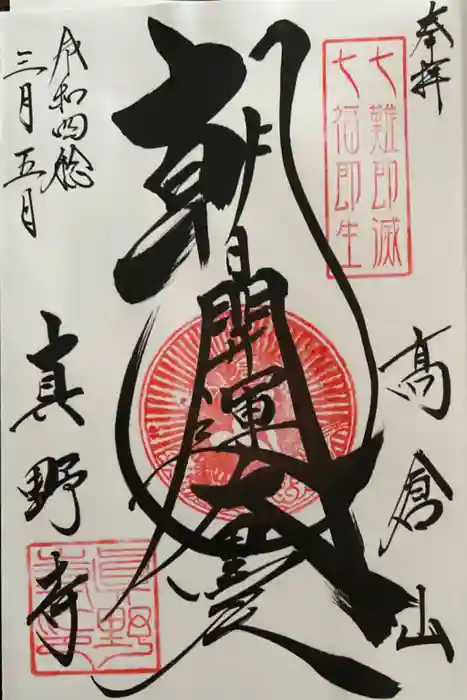 奉拝
七難即滅
七福即生
高倉山
朝日開運大黒天
令和四年
三月五日
真野寺